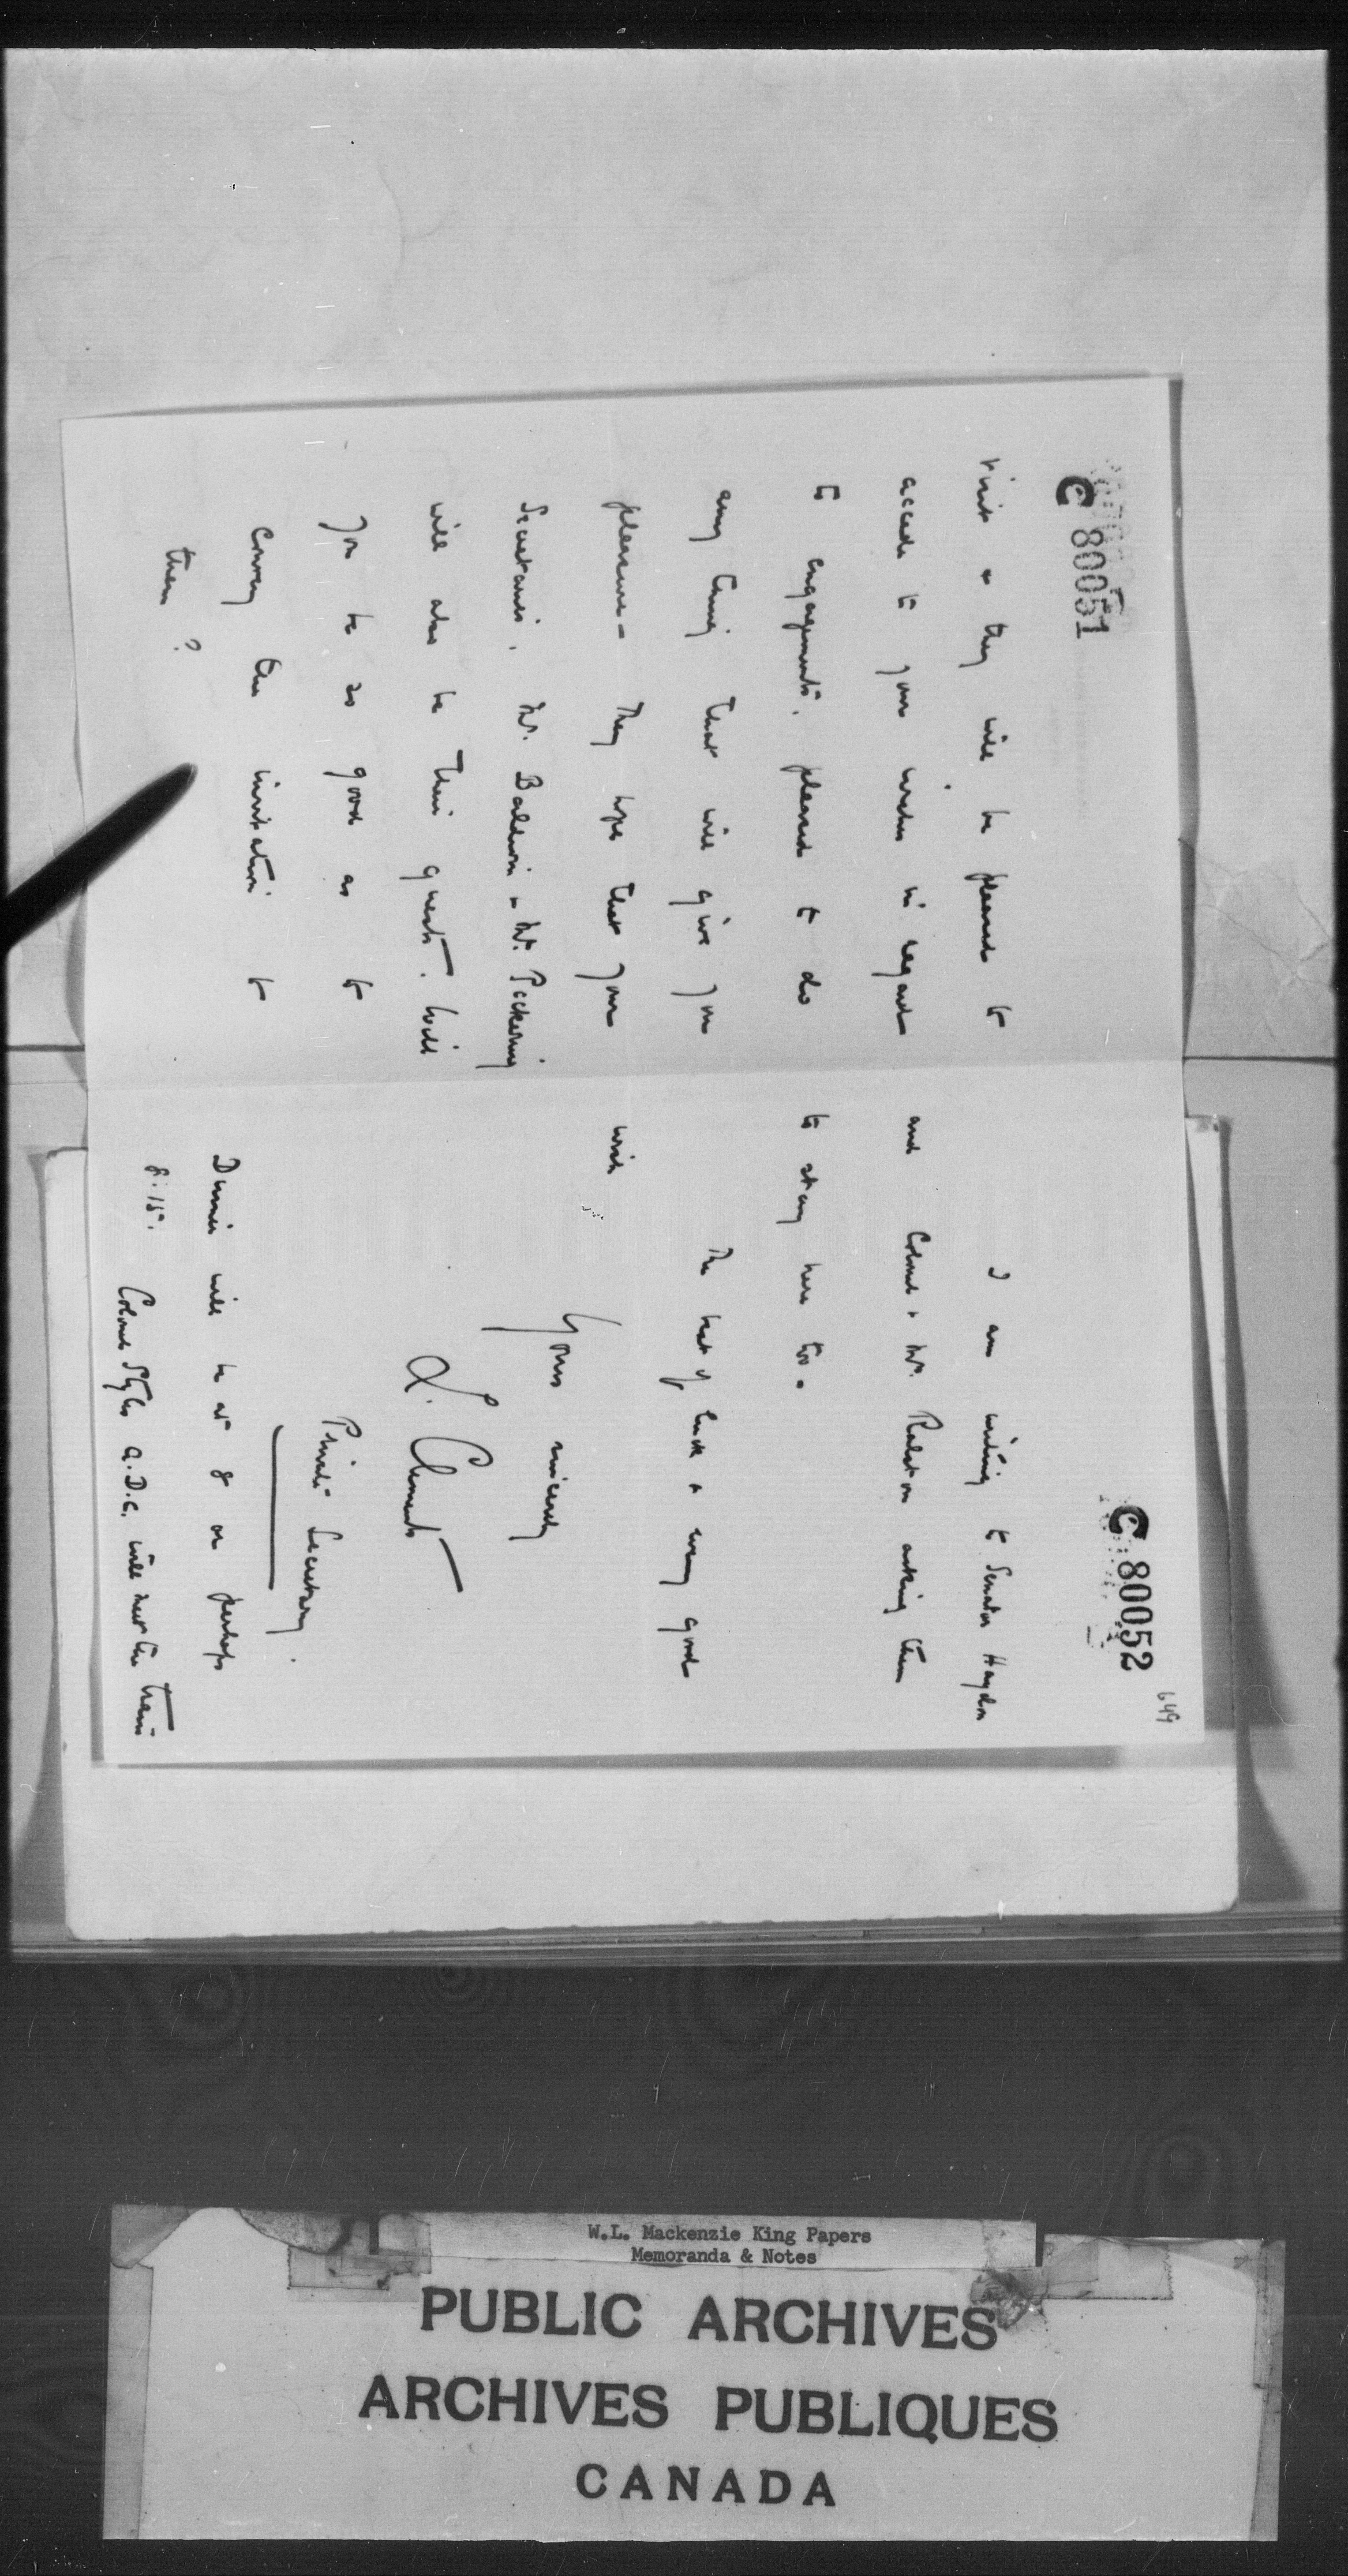 C 80051
visit & they will be pleased to
accede to your wishes in regard
to engagements, pleased to do
any thing that will give you
pleasure - They hope that your
Secretaries, Mr. Baldwin & Mr. Pickering
will also be their guests. Will
you be so good as to
convey this invitation to
them?
C 80052
649
I am writing to Senator Haydon
and Colonel & Mrs. Ralston asking them
to stay here too.
The best of luck & every good
wish
Yours sincerely
L. Clements
Private Secretary.
Dinner will be at 8 or perhaps
8:15. Colonel A.D.C. will meet the train
W.L. Mackenzie King Papers
Memoranda & Notes
PUBLIC ARCHIVES
ARCHIVES PUBLIQUES
CANADA